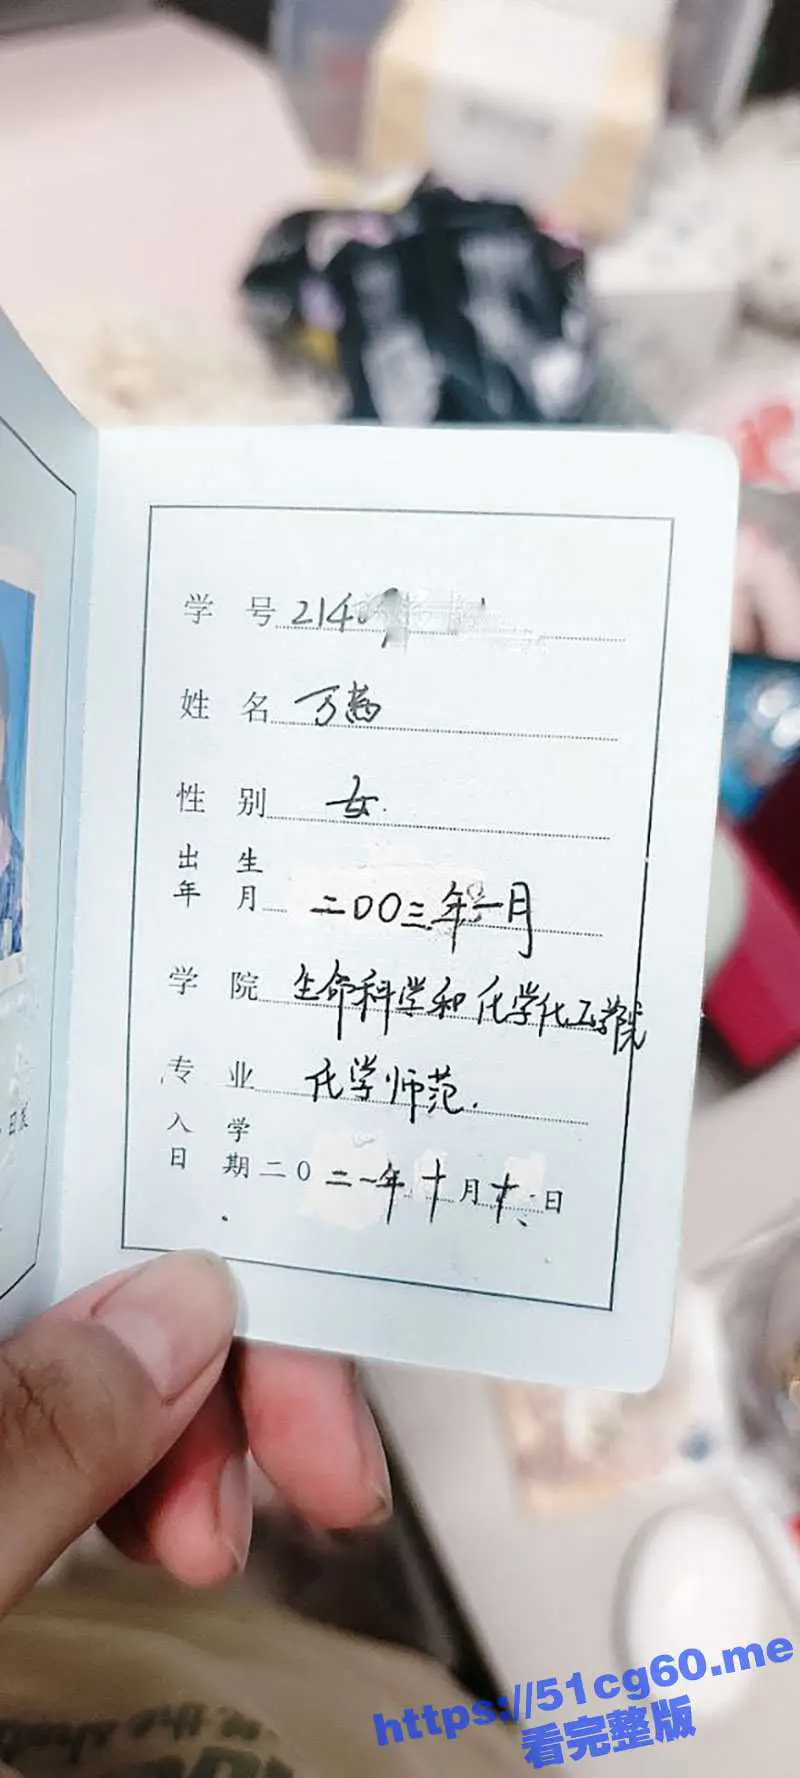 学 号 214
姓 名 万茜
性 别 女.
出 生
年 月 二00三年一月
学 院 生命科学和化学化工学院
专 业 化学师范.
入 学
日 期 二0二一年十月十二日
https://51cg60.me
看完整版